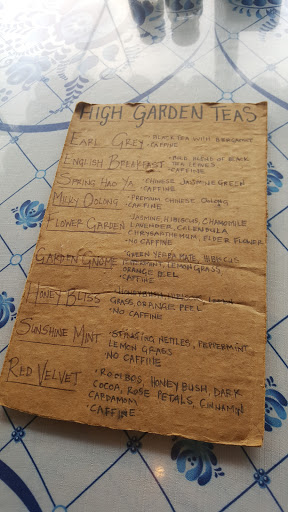 HIGH GARDEN TEAS
EARL GREY • BLACK TEA WITH BERGAMOT
• CAFFINE
ENGLISH BREAKFAST • MILD BLEND OF BLACK
TEA LEAVES
• CAFFIINE
SPRING HAO YA • CHINESE JASMINE GREEN
• CAFFINE
MILKY OOLONG • PREMIUM CHINESE OOLONG
• CAFFINE
FLOWER GARDEN • JASMINE, HIBISCUS, CHAMOMILE
LAVENDER, CALENDULA
CHRYSANTHEMUM, ELDER FLOWER
• NO CAFFINE
GARDEN GNOME • GREEN YERBA MATE, HIBISCUS
LEMONGRASS
ORANGE PEEL
• CAFFINE
HONEY BLISS
GRASS, ORANGE PEEL
• NO CAFFINE
SUNSHINE MINT • STINGING NETTLES, PEPPERMINT
LEMON GRASS
• NO CAFFIINE
RED VELVET • ROOIBOS, HONEYBUSH, DARK
COCOA, ROSE PETALS, CINNAMON
CARDAMOM
• CAFFINE